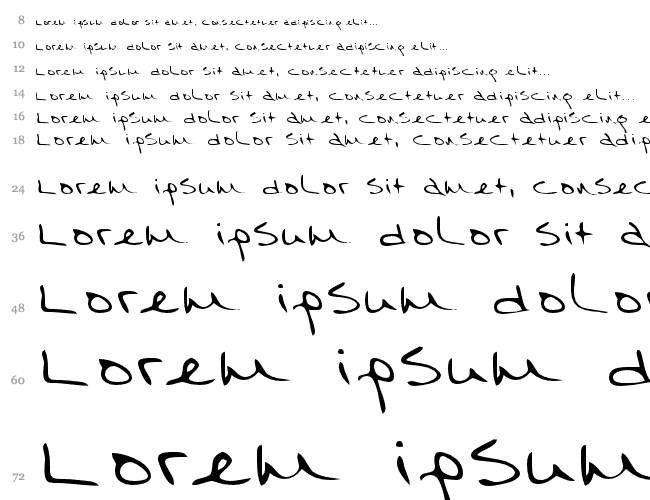 8 Lorem ipsum dolor sit amet, consectetuer adipiscing elit...
10 Lorem ipsum dolor sit amet, consectetuer adipiscing elit...
12 Lorem ipsum dolor sit amet, consectetuer adipiscing elit...
14 Lorem ipsum dolor sit amet, consectetuer adipiscing elit...
16 Lorem ipsum dolor sit amet, consectetuer adipiscing e
18 Lorem ipsum dolor sit amet, consectetuer adip
24 Lorem ipsum dolor sit amet, consec
36 Lorem ipsum dolor sit a
48 Lorem ipsum dolor
60 Lorem ipsum d
72 Lorem ipsum